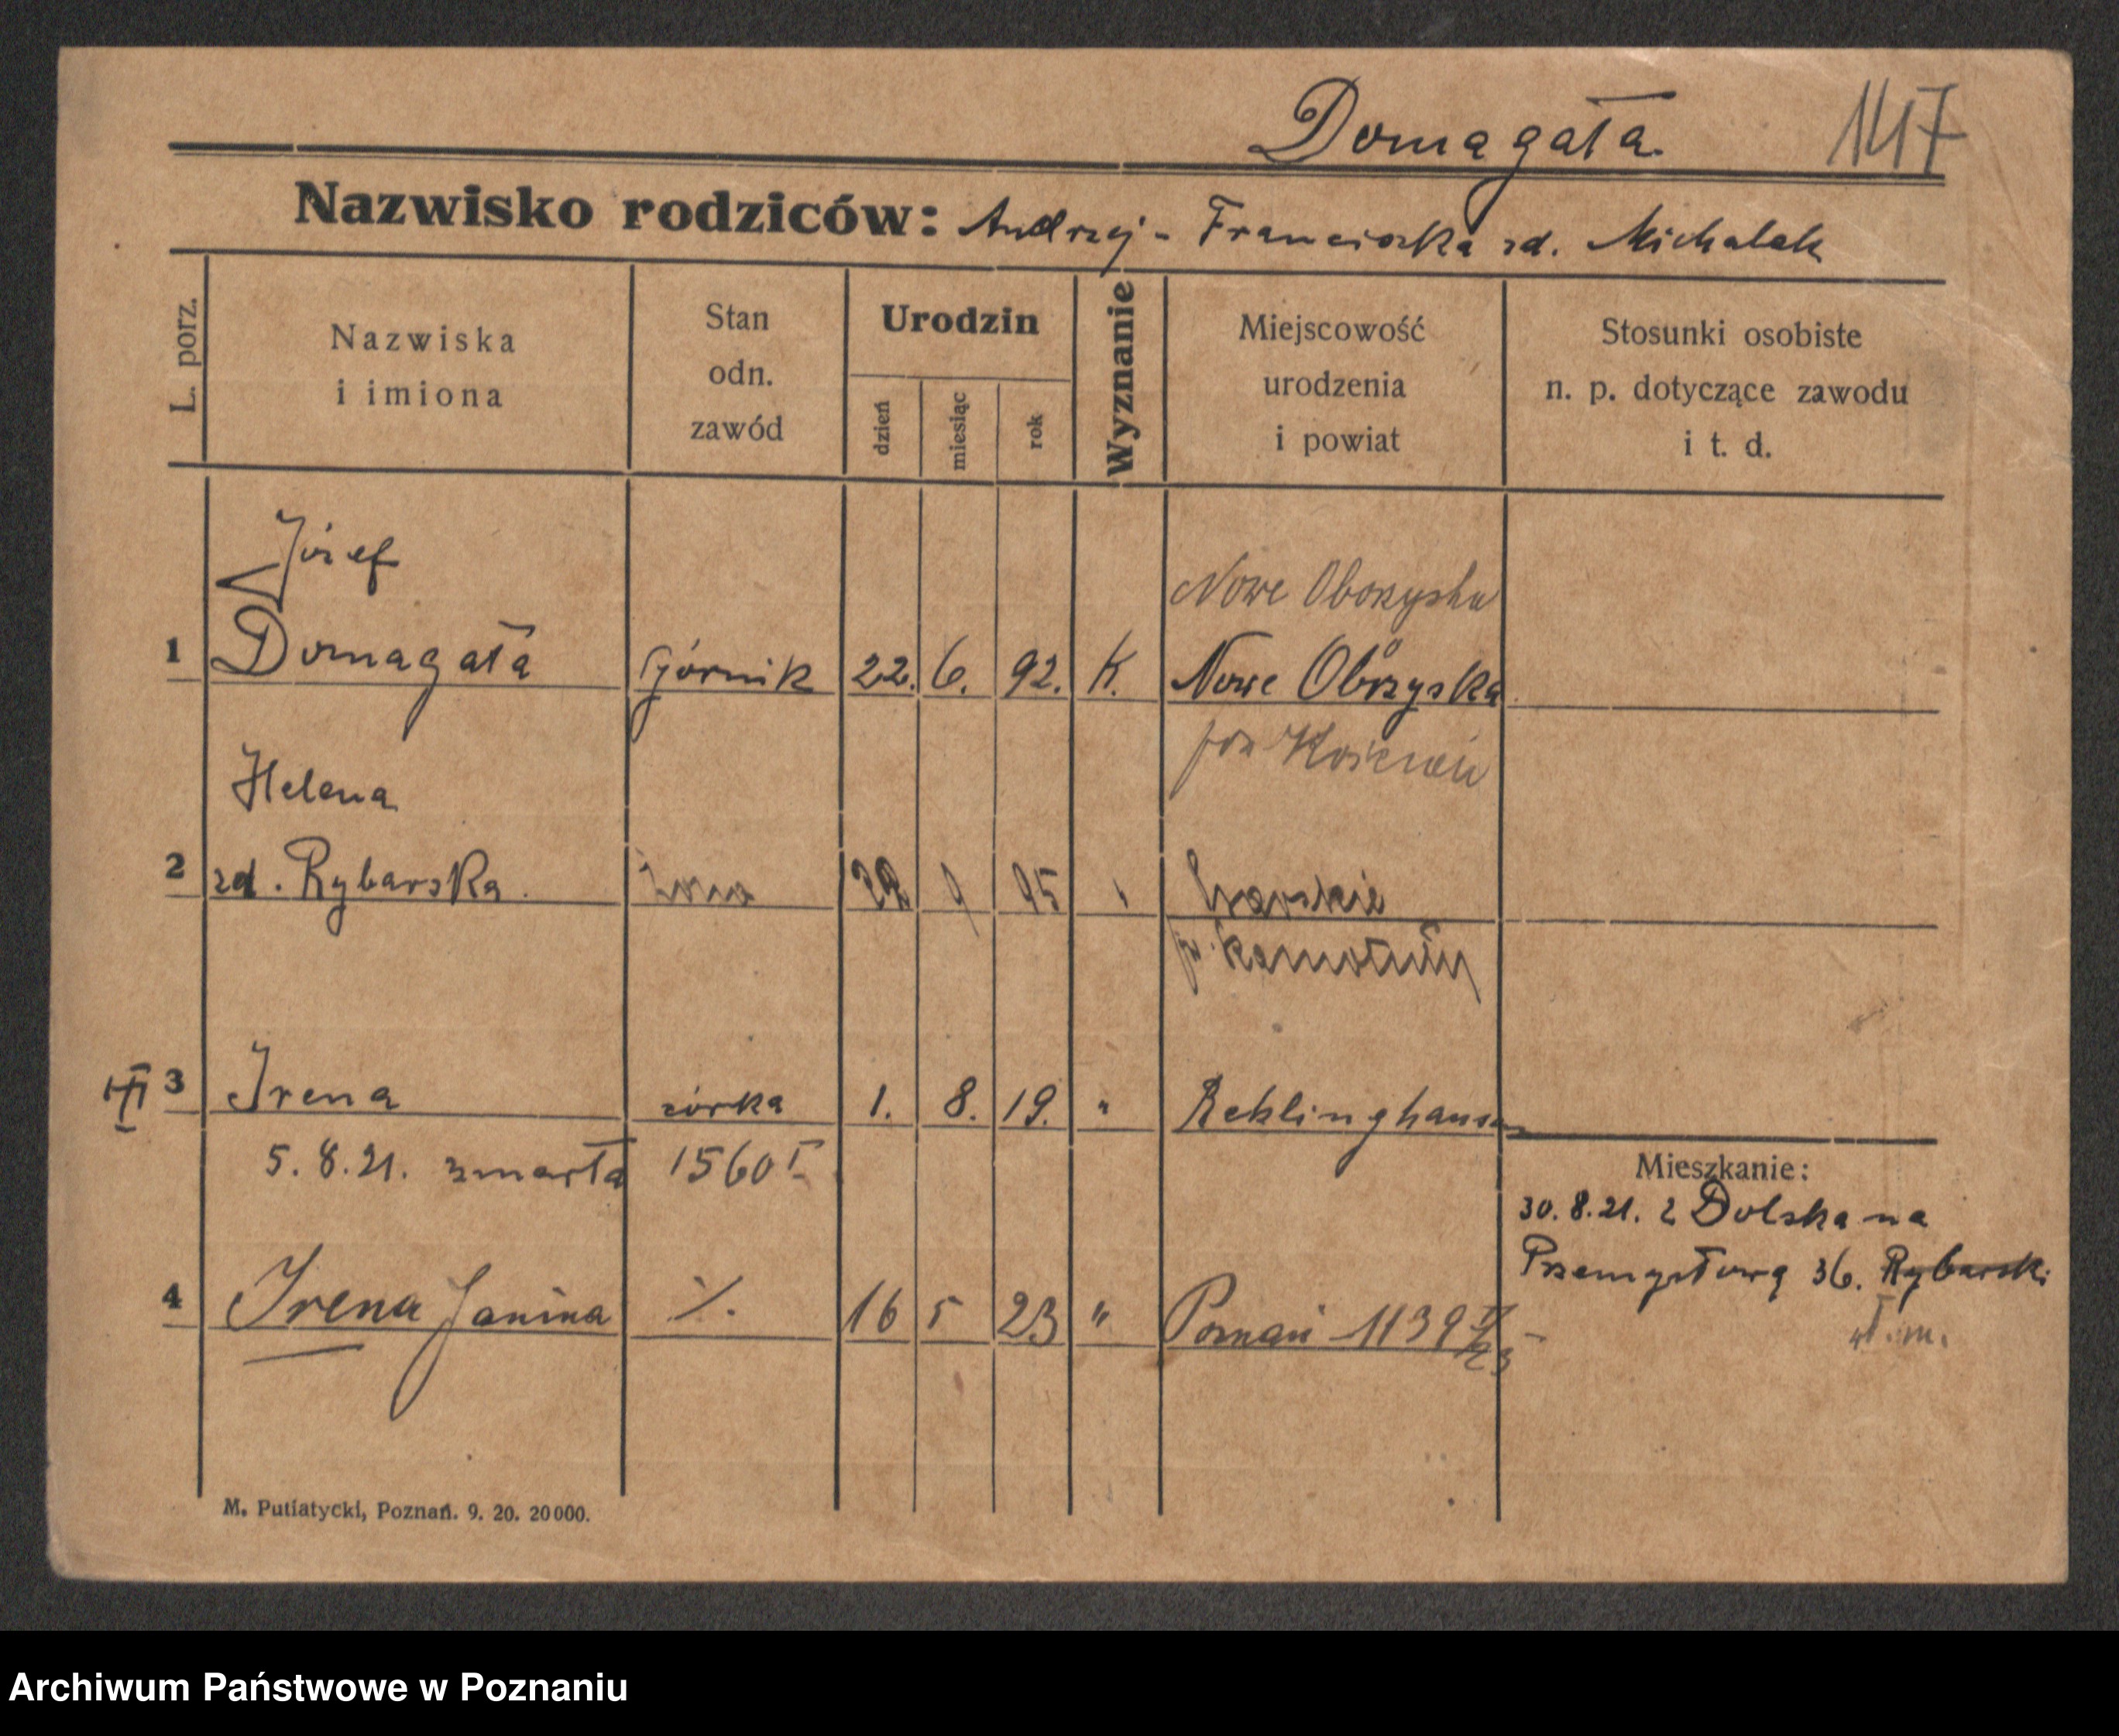 Domagała 1417
Nazwisko rodziców: Andrzej - Franciszka zd. Michalak
L. porz.
Nazwiska
i imiona
Stan
odn.
zawód
Urodzin
dzień
miesiąc
rok
Wyznanie
Miejscowość
urodzenia
i powiat
Stosunki osobiste
n. p. dotyczące zawodu
i t. d.
Józef
Nowe Oborzyska
1 Domagała Górnik 22. 6. 92. K. Nowe Obrzyska
pow Kościan
Helena
2 zd. Rybarska żona 9 95
p. Szamotuły
3 Irena córka 1. 8. 19. " Reklinghausen
5. 8. 21. zmarła 1560 I
Mieszkanie:
30. 8. 21. z Dolska na
Przemysłową 36. Rybarski
wł. m.
4 Irena Janina ./. 16 5 23 " Poznań 1139
M. Putiatycki, Poznań. 9. 20. 20000.
Archiwum Państwowe w Poznaniu